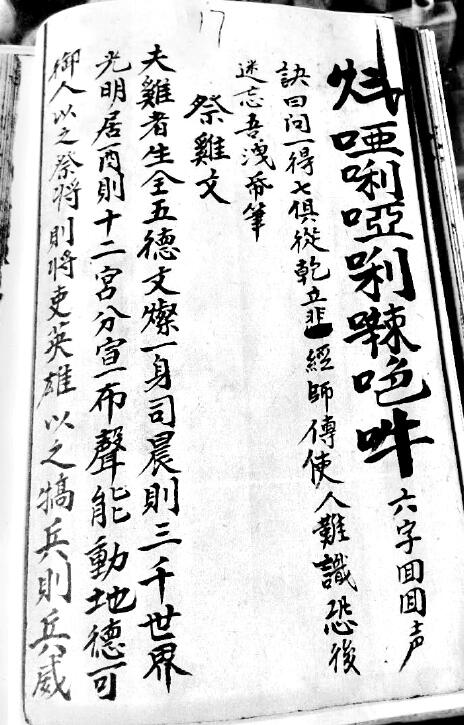 17
唖唎啞唎吽 六字囬囬声
訣曰问一得七俱從乾立經師傅使人難識恐後
迷忘吾洩筆
祭雞文
夫雞者生全五德文燦一身司晨則三千世界
光明居酉則十二宮分宣布聲能動地德可
御人以之祭將則將吏英雄以之犒兵則兵威